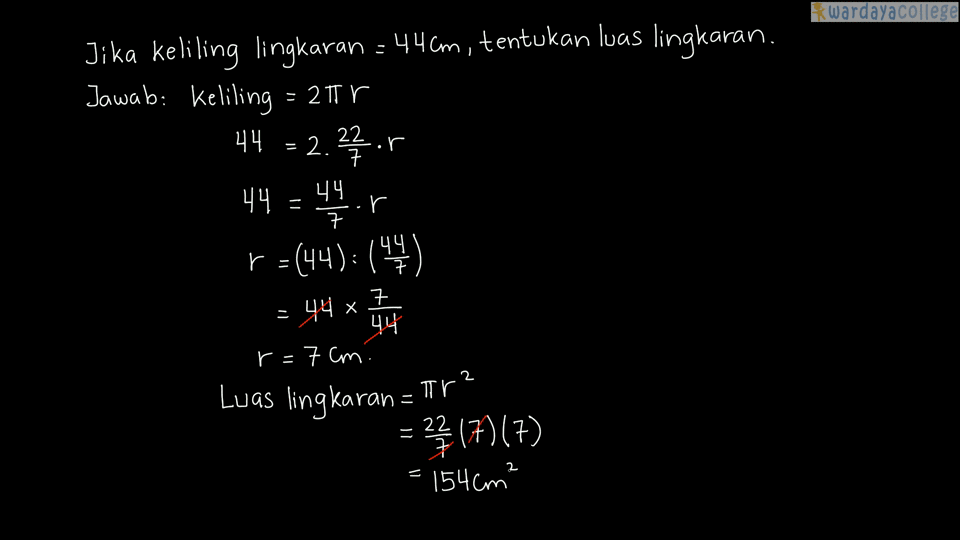 wardayacollege
Jika keliling lingkaran = 44cm, tentukan luas lingkaran.
Jawab: keliling = 2πr
44 = 2. 22/7 . r
44 = 44/7 . r
r = (44) : (44/7)
= 44 × 7/44
r = 7 cm.
Luas lingkaran = πr²
= 22/7 (7)(7)
= 154cm²